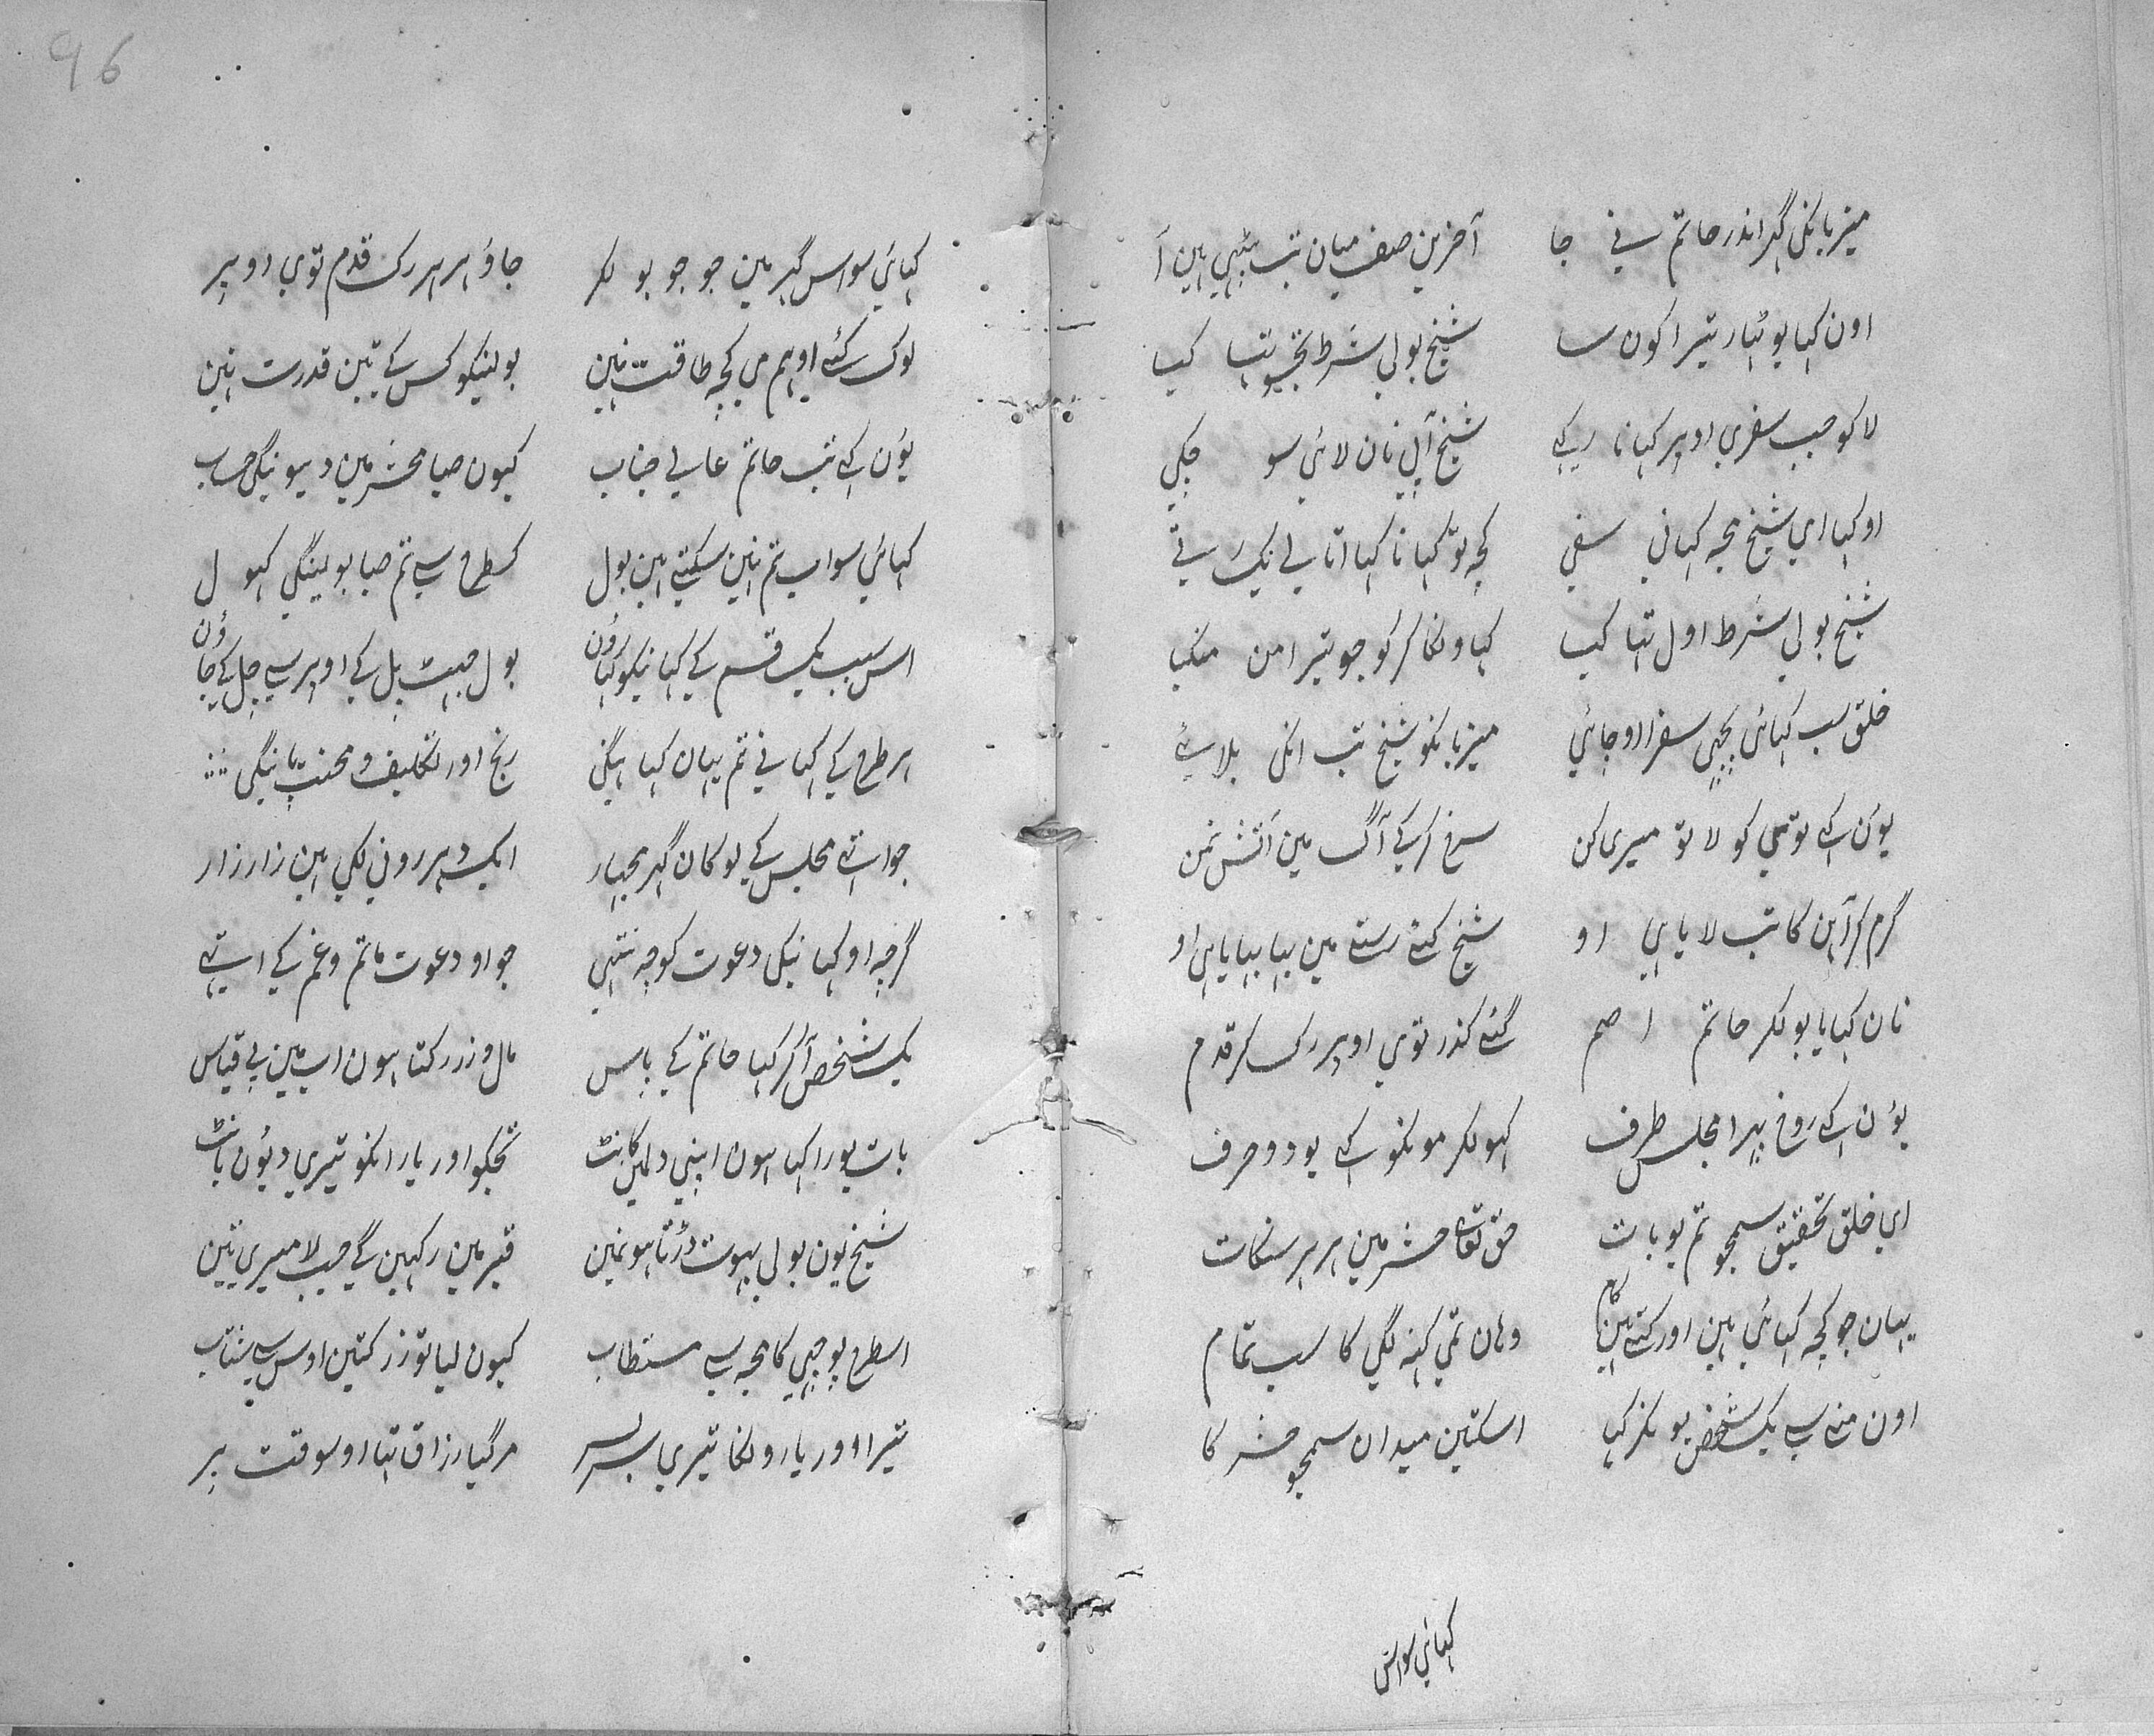 میزبانکی گهر اندر حاتم نے جا آخرین صف میان تب بیٹهی هین آ
اون کہا یو بهار تیرا کون سا شیخ بولی شرط تجہ یو تہا کیا
لاکو جب سفری اوپر کہانا رکہے شیخ آپی نان لائی سو چکی
او کہا ای شیخ مجہ کہانی سفی کچہ تو کہانا کہا اتالے نیک پے
شیخ بولی شرط اول تہا کیا کہاونکا کر کو جو تیرا من منگیا
خلق سب کہائی پچہی سفرا اوچائی میزبانکو شیخ تب انکی بلائے
یون کہے توی کو لا تو میری کن سرخ کرکے آگ مین آتش نمن
گرم کر آہن کا تب لایا ہی او شیخ کتے رستے مین
نان کہایا بولکر حاتم اصم گئے گذر توی اوپر رک کر قدم
یون کہے روخ پہرا مجلس طرف کہو لکر مونکو کہے یو دو حرف
ای خلق تحقیق سمجو تم یو بات حق تعالی حشر مین ہر ہر سنکات
یہان جو کچہ کہائی ہین اور کتے ہین کام وہان تمی کہنہ لگی کا سب تمام
اون منے سے یک شخص یو نکر کہا اسکتین میدان سمجو حشر کا
کہائی سو اس
96
کہائی سو اس گہر مین جو جو بولکر جاؤ ہر ہر رک قدم توی اوپر
لوک کئے او ہم می کچہ طاقت نہین بولنیکو کس کے تین قدرت نہین
یون کہے تب حاتم عالی جناب کیون صبا محشر مین دیونیگی حساب
کہائی سو اب تم نہین سکتے ہین بول کسطرح سے تم صبا بولینگی کہول
اس سبب یک قسم کے کہانیکو کہاؤن بول جهیٹ پل کے اوپر سے چل کے جاؤن
ہر طرح کے کہانے تم یہان کہائینگی رنج اور تکلیف و محنت پائینگی
جو اتہے مجلس کے لوکان گہر مجہار ایک دہر رونی لگی ہین زار زار
گرچہ او کہانیکی دعوت کوچہ نتہی جو او دعوت ماتم و غم کے اتہے
یک شخص آکر کہا حاتم کے پاس مال و زر رکتا ہون اب مین بے قیاس
بات یورا کہا ہون اپنی دلمین گانٹ تجکو اور یارانکو تیری دیون بانٹ
شیخ یون بولی بہوت ڈرتا ہو نمین قبر مین رکہین گے جب لا میری تین
اسطرح پوچہی کا مجہ سے مستطاب کیون لیا تو زر کتین اوس سے شتاب
تیرا اوور یارونکا تیری سربسر مر گیا رزاق تہا اوسوقت پر